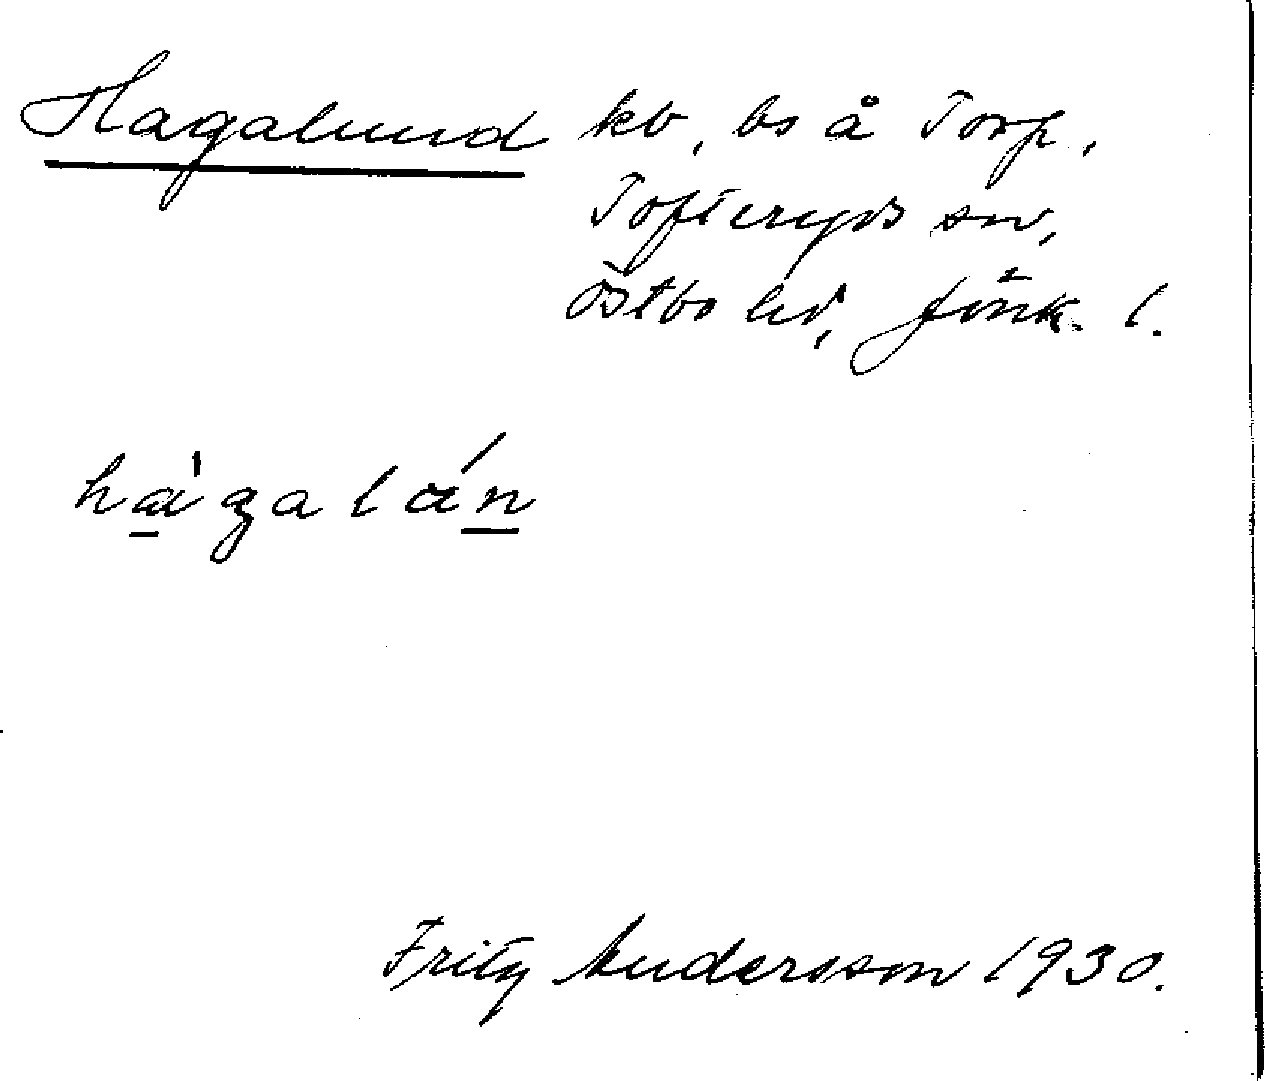 Hagalund kb, bs å Torp,
Tofteryds sn,
Östbo hd, Jönk. l.
hàgalán
Fritz Andersson 1930.